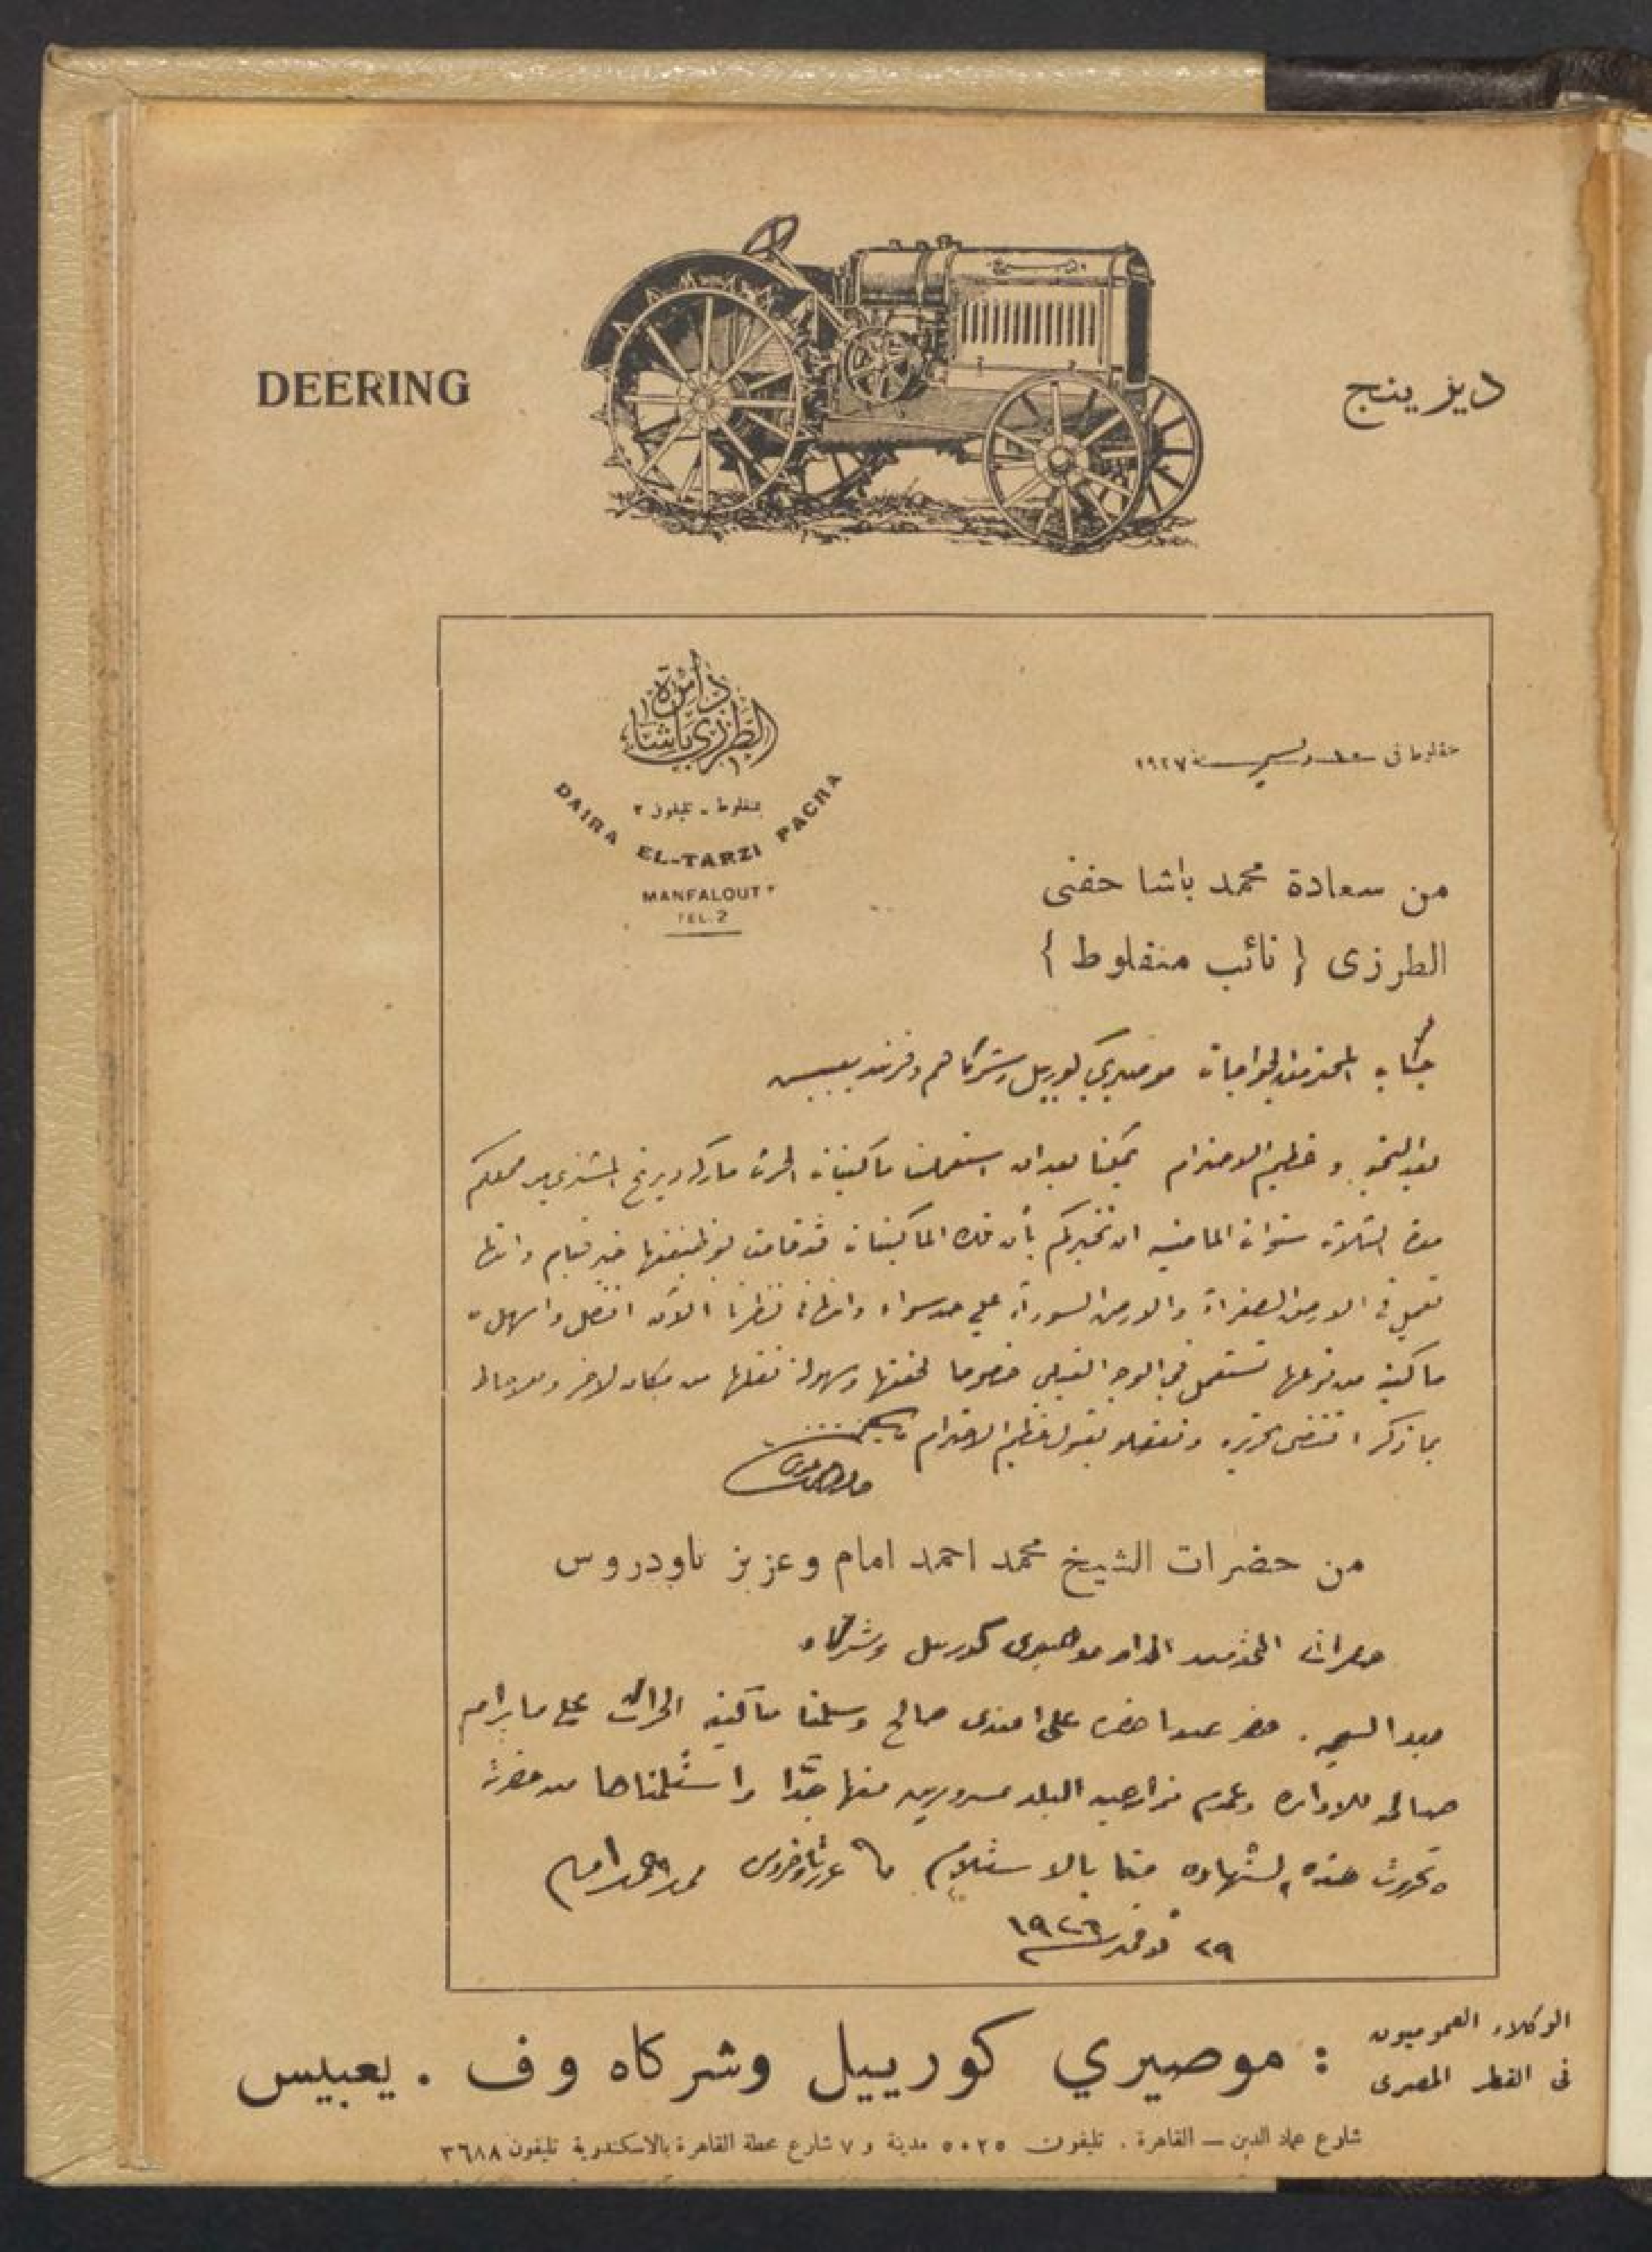 DEERING
ديرينج
دائرة
الطرزى باشا
بمنفلوط - تليفون ٢
DAIRA EL-TARZI PACHA
MANFALOUT
TEL. 2
منفلوط فى ديسمبر سنة ١٩٢٧
من سعادة محمد باشا حفنى
الطرزى { نائب منفلوط }
جناب المحترمين الخواجات موصيري كورييل وشركاهم وفرند يعبيس
بعد التحية وعظيم الاحترام يمكننا بعد ان استعملنا ماكينات الحرث ماركة ديرنج المشترى من محلكم
مدة الثلاث سنوات الماضيه ان نخبركم بأن هذه الماكينات قد قامت بوظيفتها خير قيام وانها
تعمل فى الارض الصفراء والارض السوداء على حد سواء وانها فى نظرنا الآن افضل واسهل
ماكينة من نوعها تستعمل في الوجه القبلى خصوصا لخفتها وسهولة نقلها من مكان لاخر
بما ذكر اقتضى تحريره وتفضلو بقبول عظيم الاحترام
من حضرات الشيخ محمد احمد امام وعزيز تاودروس
حضرات المحترمين موصيرى كورييل وشركاه
بعد السلام . حضر عندنا حضرة على افندى صالح وسلمنا ماكينة الحراث على ما يرام
صالحه للاداره وعموم مزارعين البلد مسرورين منها جدا واستلمناها من حضرته
وتحررت هذه الشهاده منا بالاستلام عزيز تاودروس محمد احمد امام
٢٩ نوفمبر ١٩٢٦
الوكلاء العموميون
فى القطر المصرى
: موصيري كورييل وشركاه وف . يعبيس
شارع عماد الدين — القاهرة . تليفون ٥٠٢٥ مدينة و ٧ شارع محطة القاهرة بالاسكندرية تليفون ٣٦٨٨